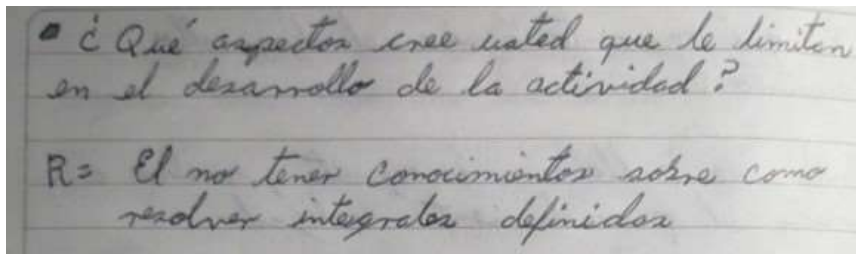 ▪ ¿Qué aspectos cree usted que le limitan
en el desarrollo de la actividad?
R= El no tener conocimientos sobre como
resolver integrales definidas